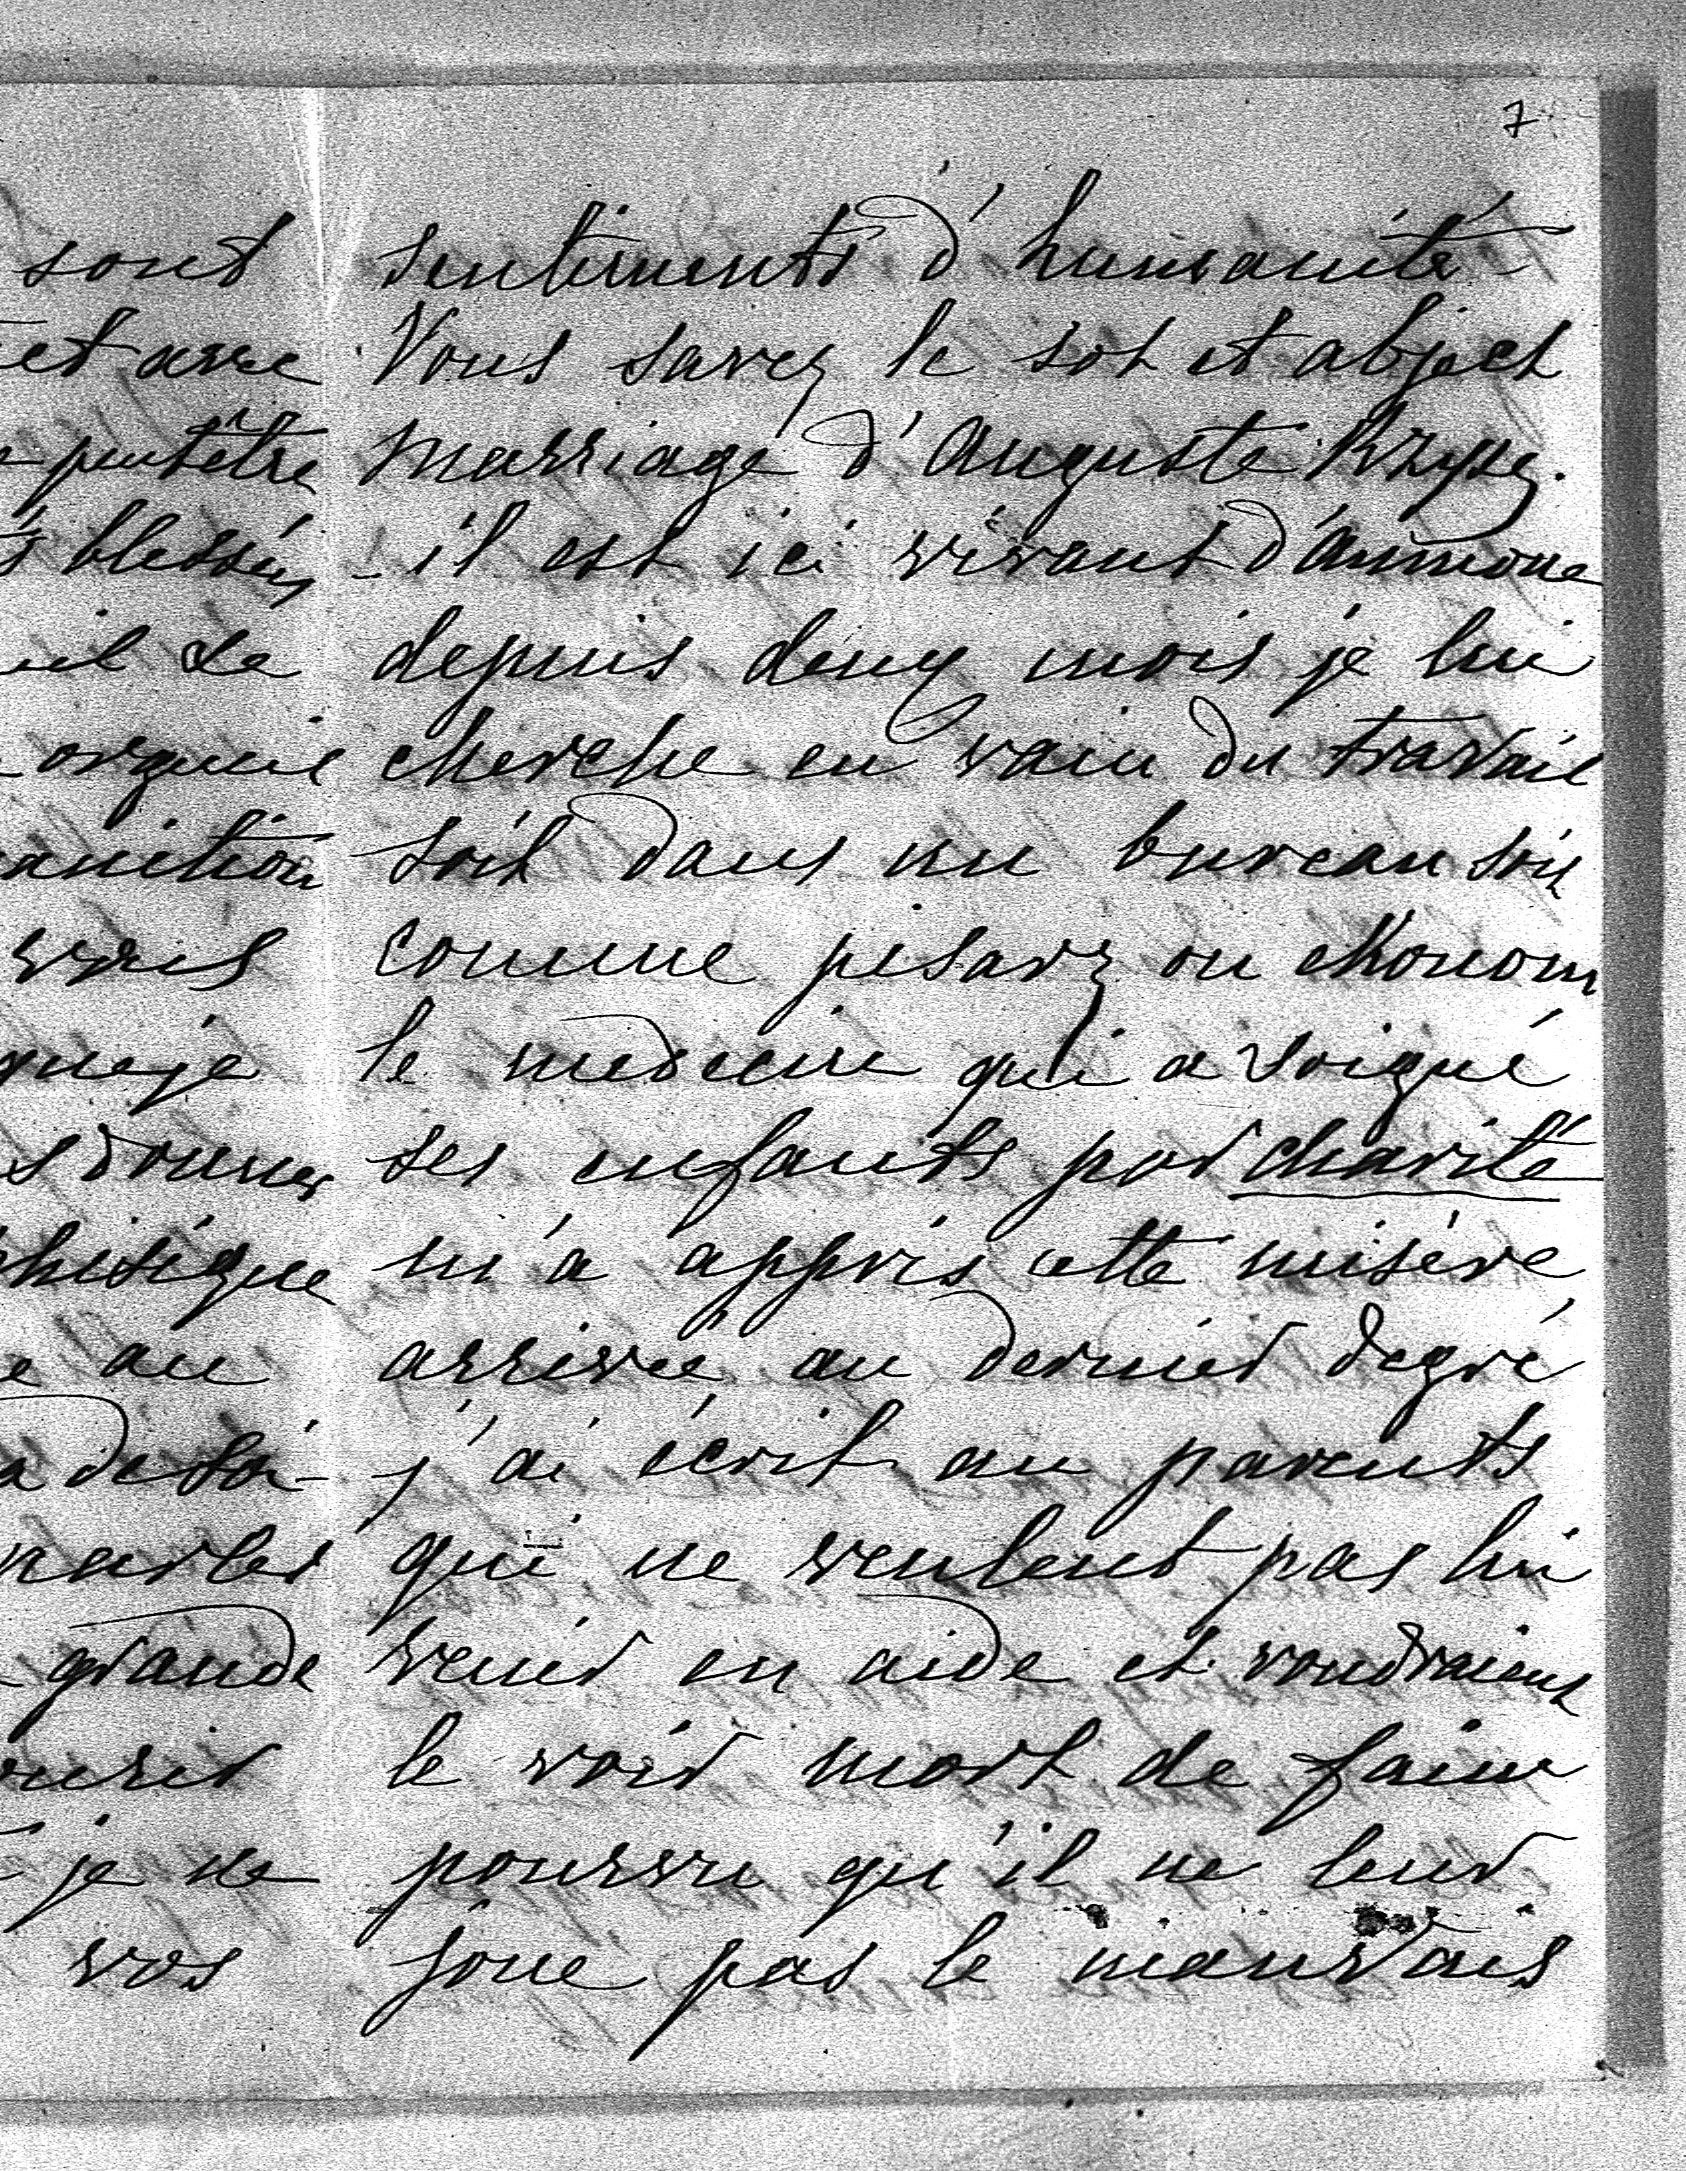 7
sont
et avec
peutêtre
blessés
il se
orgueil
anition
vous
que je
s donner
phisique
e au
parler
grande
ourir
je ne
vos
sentiments d'humanité
Vous savez le sot et abject
marriage d'Auguste
- il est ici vivant d'aumone
depuis deux mois je lui
cherche en vain du travail
soit dans un bureau soit
comme pisarz ou ekonom
le medecin qui a soigné
ses enfants par charité
m'a appris cette misère
arrivée au dernier degré
j'ai écrit au parents
qui ne veulent pas lui
venir en aide et voudraient
le voir mort de faim
pourvu qu'il ne leur
joue pas le mauvais